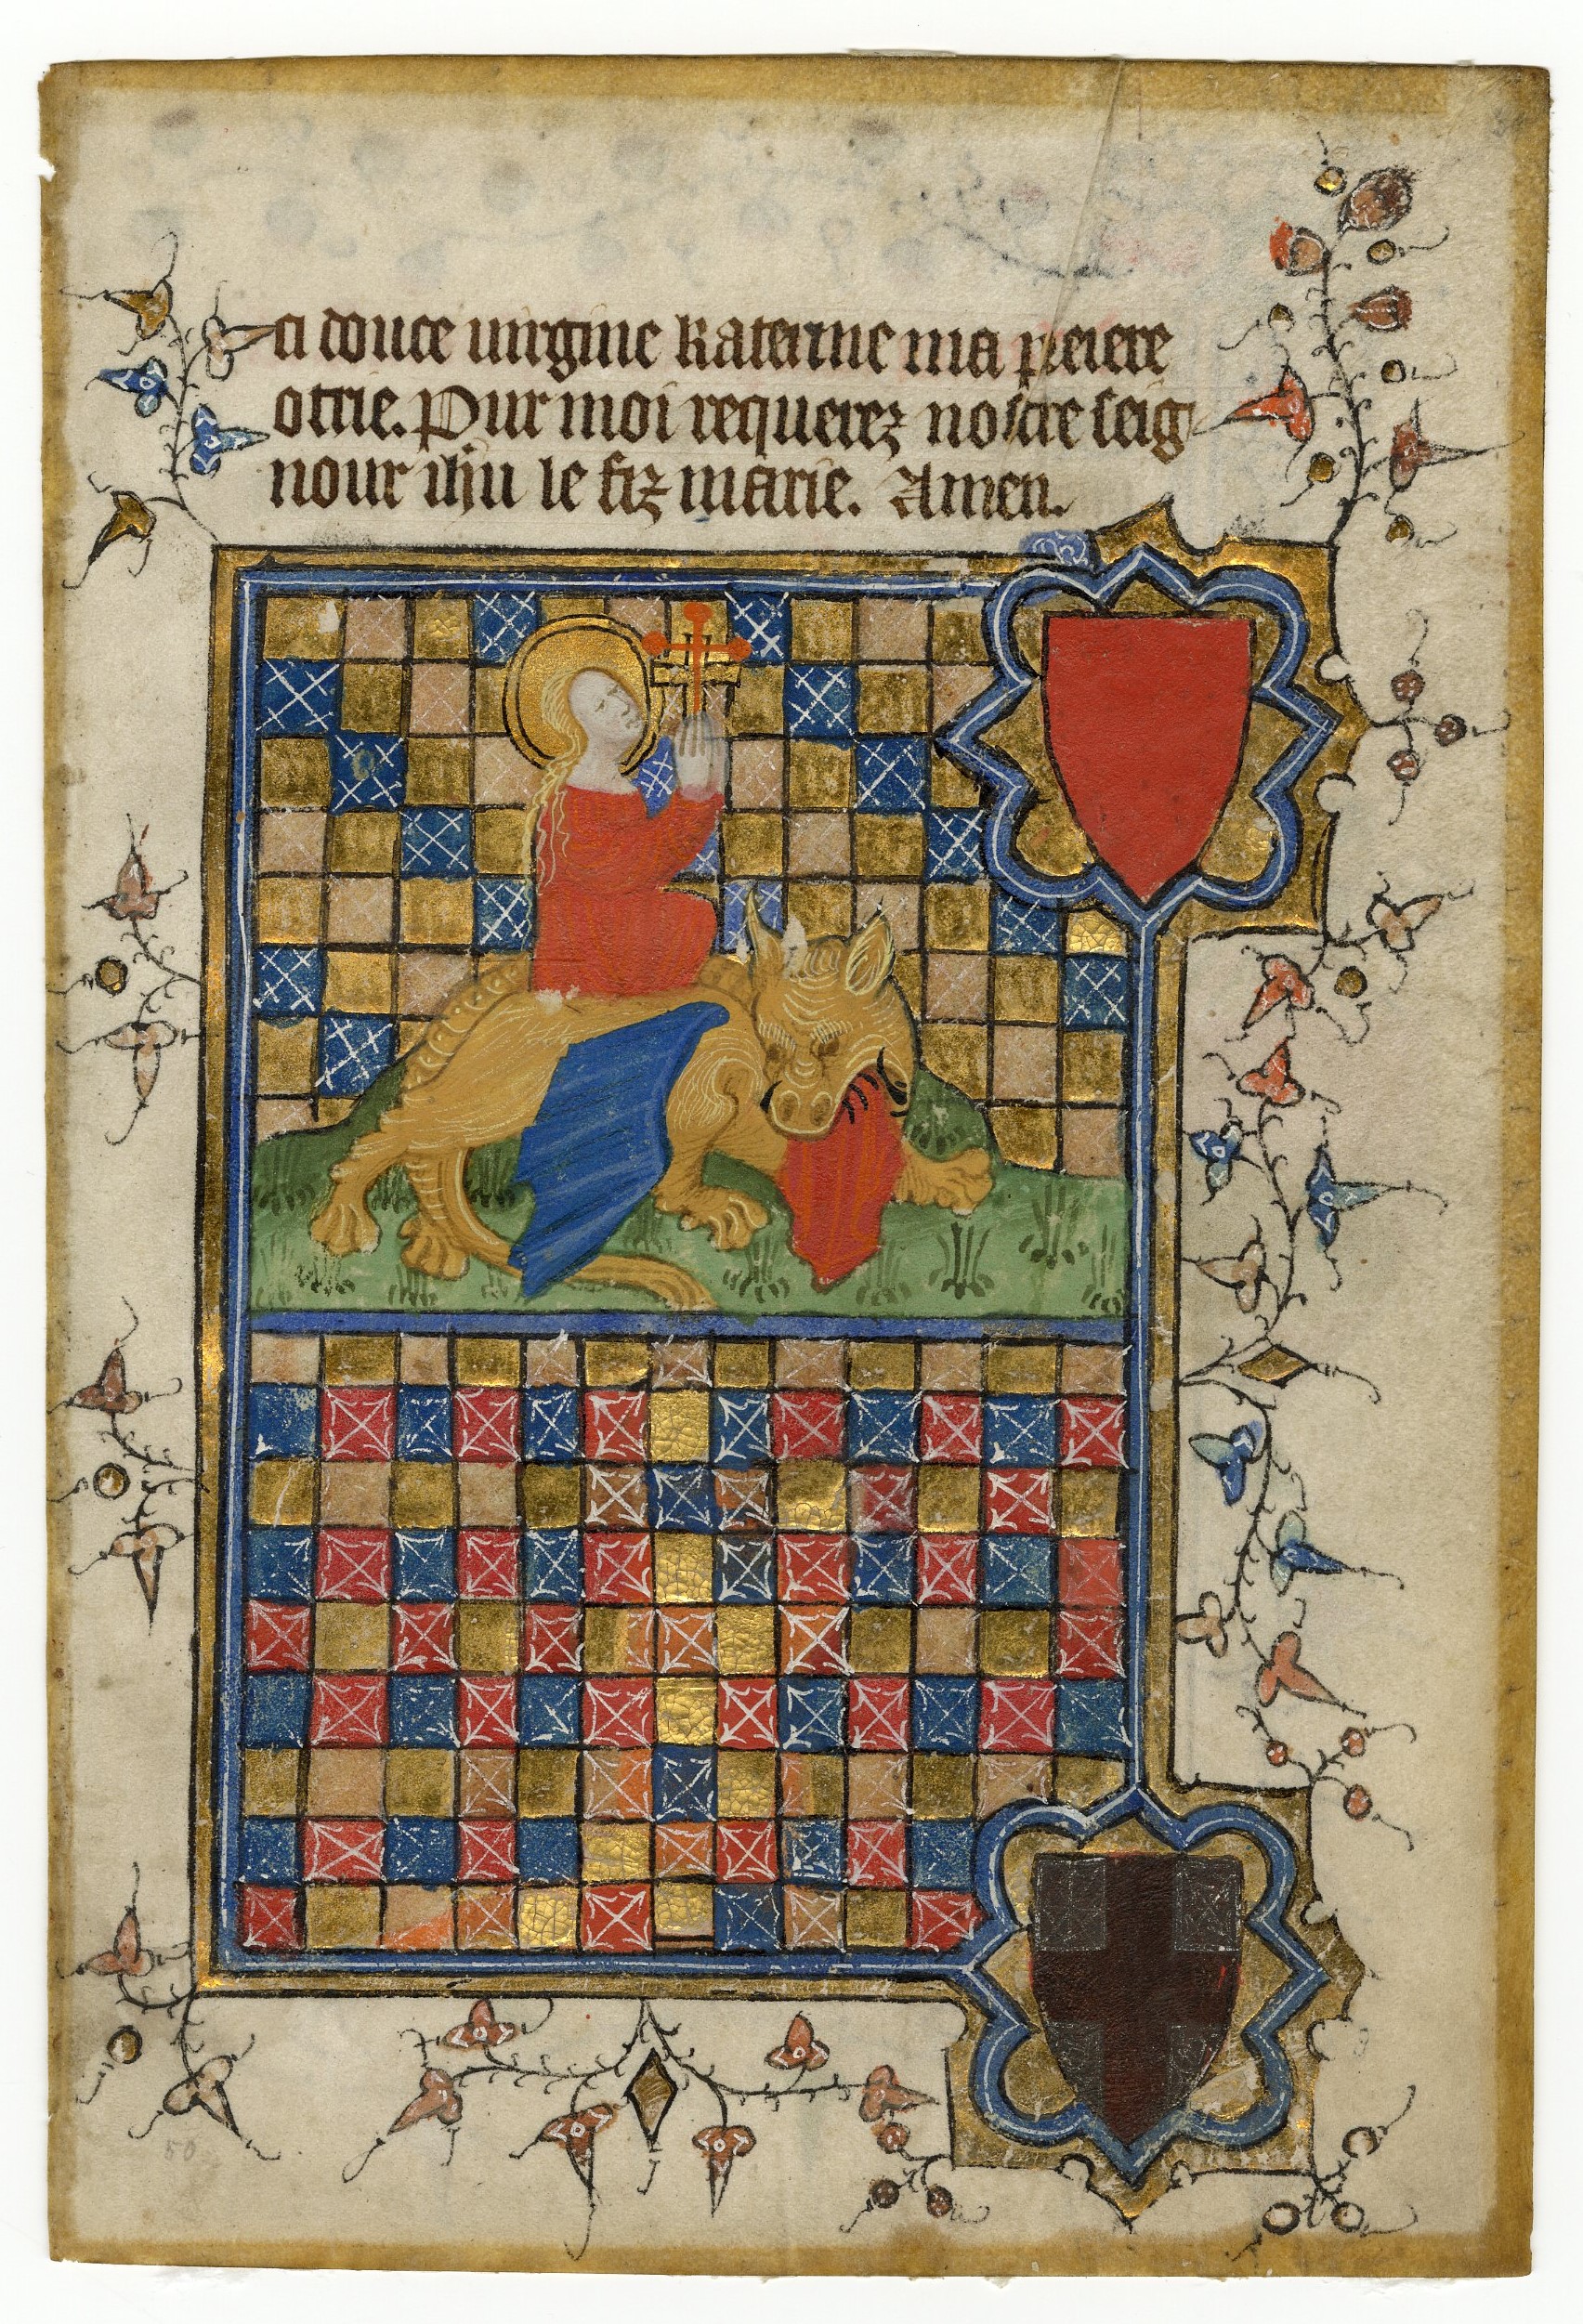 ci douce uirgine Katerine ma preiere
otrie. Pur moi requerez nostre seig
nour ihu le fiz marie. Amen.
50